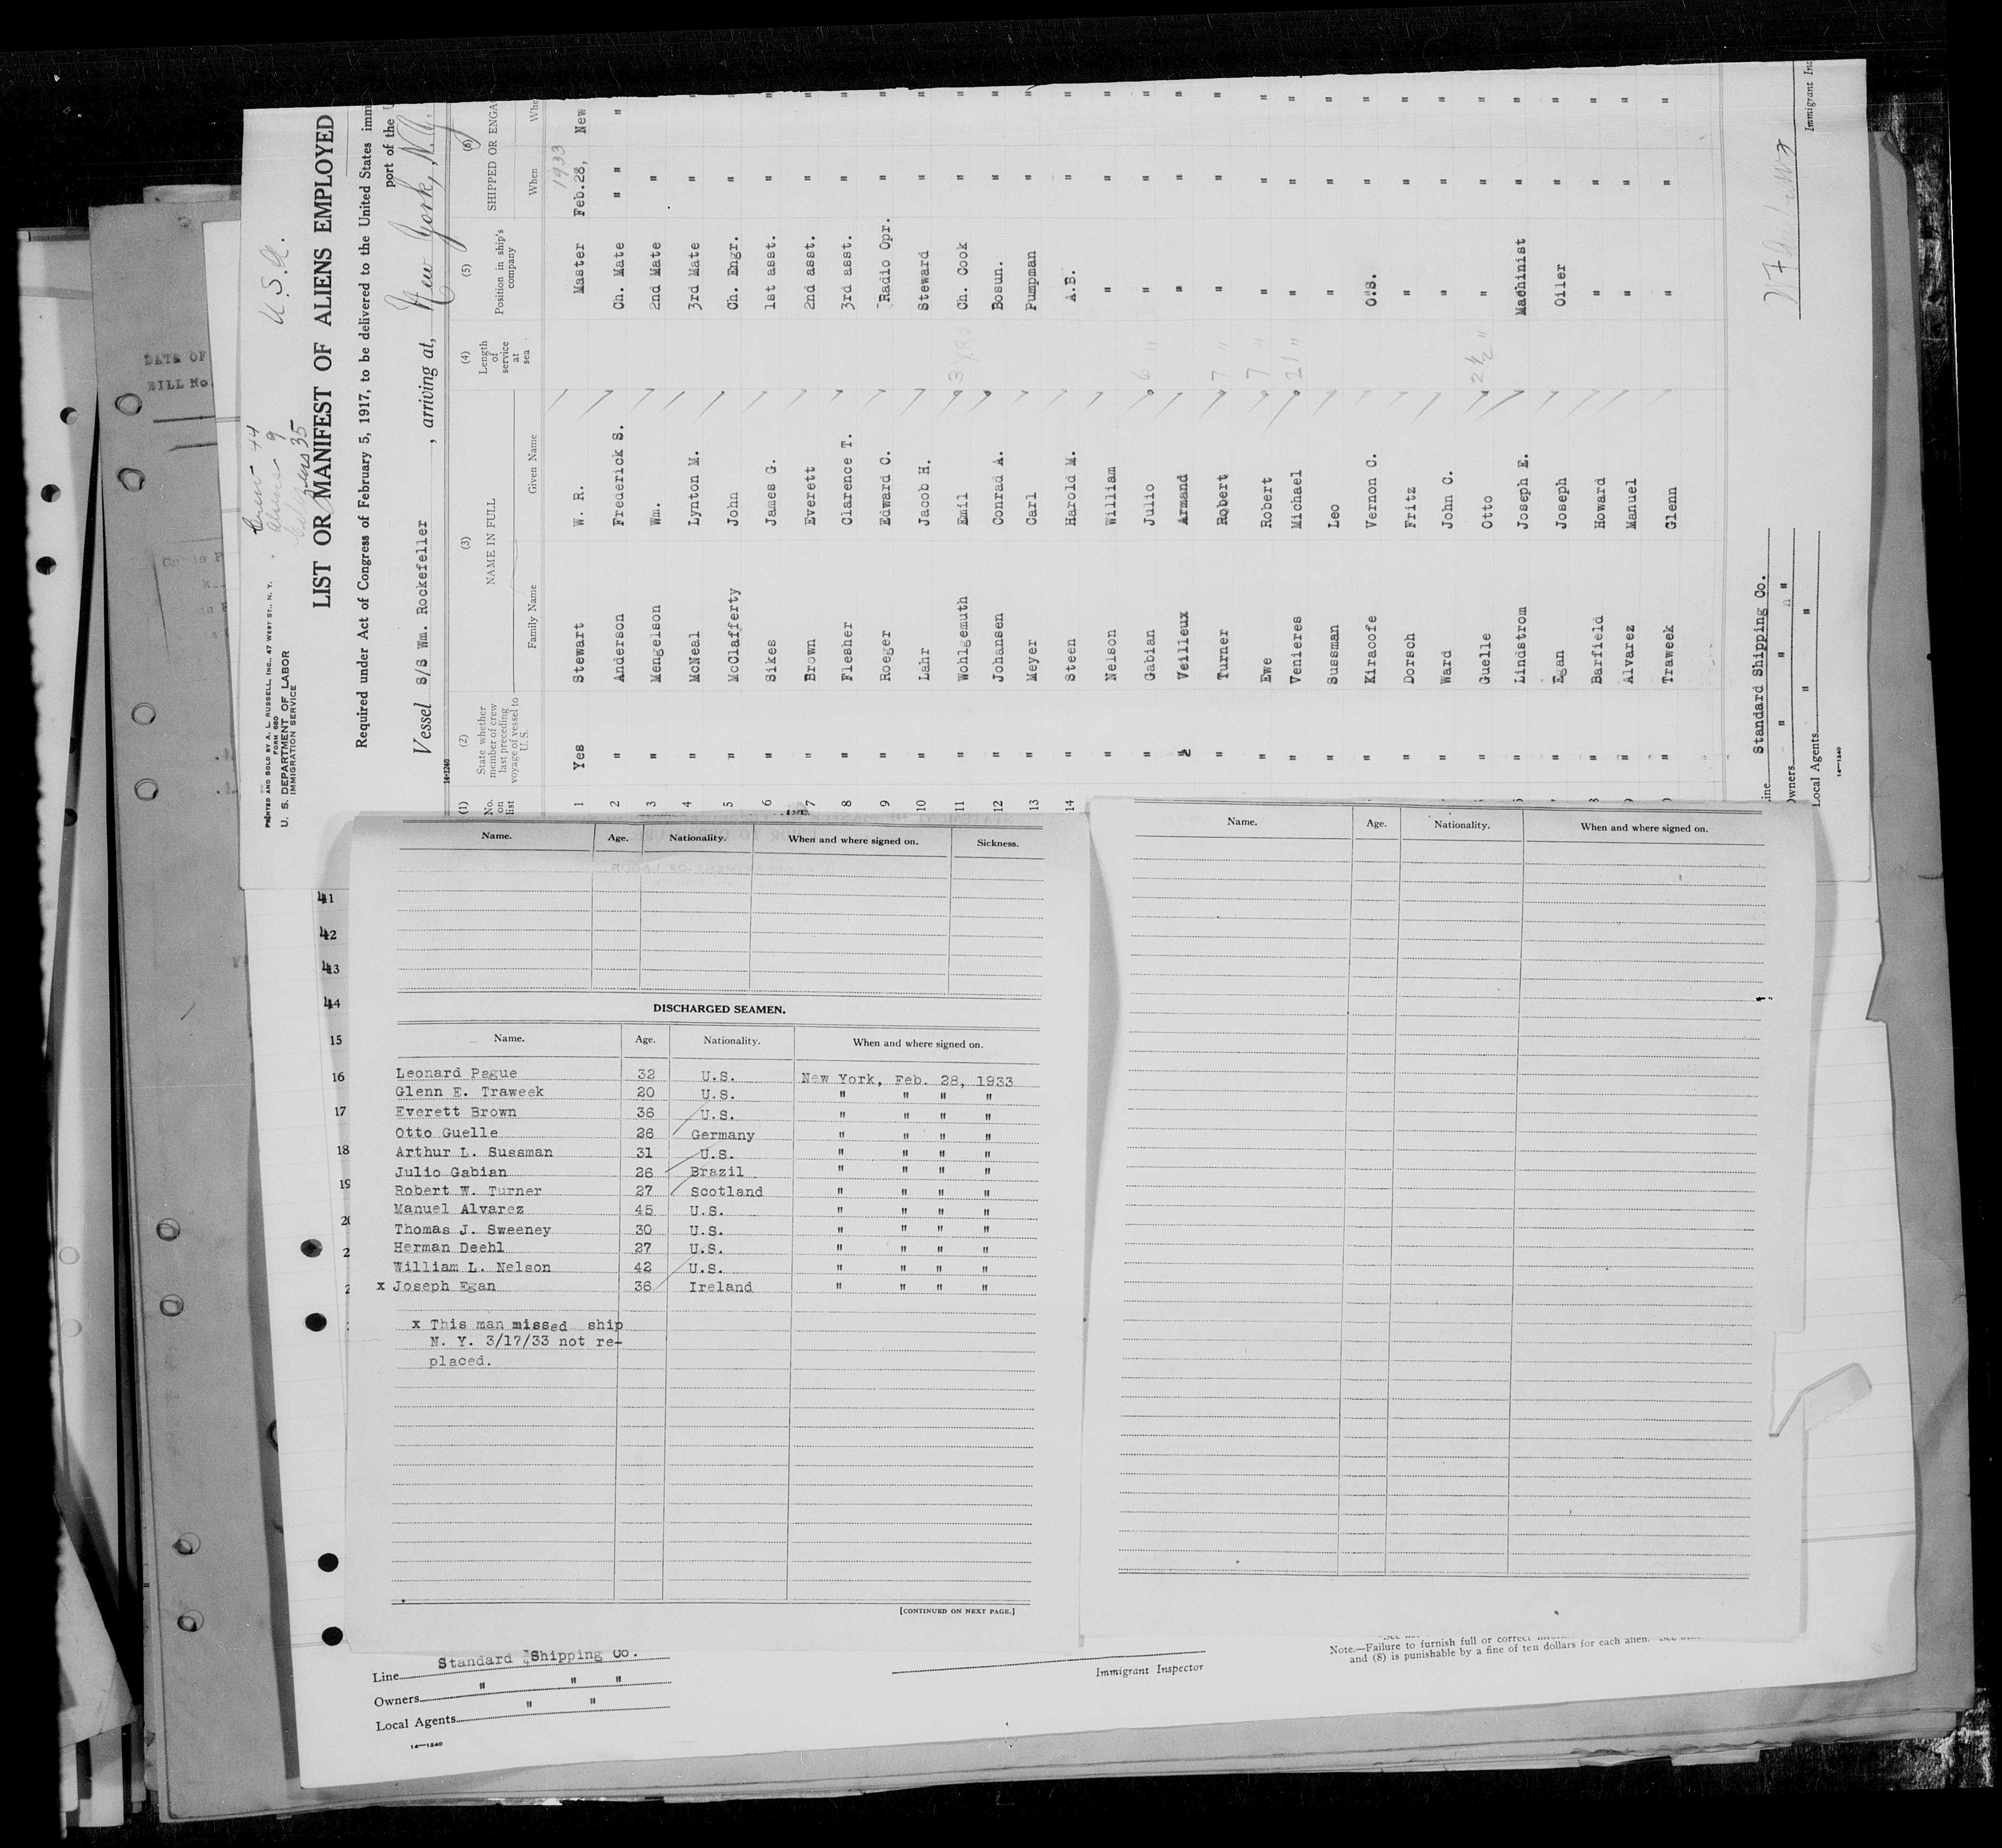 DATE OF
BILL No
PRINTED AND SOLD BY A. L. RUSSELL, INC., 47 WEST ST., N. Y.
FORM 680
U. S. DEPARTMENT OF LABOR
IMMIGRATION SERVICE
Crew 44
Aliens 9
35
U.S.A.
LIST OR MANIFEST OF ALIENS EMPLOYED
Required under Act of Congress of February 5, 1917, to be delivered to the United States imm
port of the U
Vessel S/S Wm. Rockefeller, arriving at, New York, N.Y.
14-1240
(1) No. on list (2) State whether member of crew last preceding voyage of vessel to U. S. (3) NAME IN FULL Family Name Given Name (4) Length of service at sea (5) Position in ship's company (6) SHIPPED OR ENGA When Whe
1933
1 Yes Stewart W. R. Master Feb.28, New
2 " Anderson Frederick S. Ch. Mate " " "
3 " Mengelson Wm. 2nd Mate "
4 " McNeal Lynton M. 3rd Mate " "
5 " McClafferty John Ch. Engr. " "
6 " Sikes James G. 1st asst. " "
7 " Brown Everett 2nd asst. " "
8 " Flesher Clarence T. 3rd asst. " "
9 " Roeger Edward C. Radio Opr. " "
10 " Lahr Jacob H. Steward " "
11 " Wohlgemuth Emil 3 yrs Ch. Cook " "
12 " Johansen Conrad A. Bosun. " "
13 " Meyer Carl Pumpman " "
14 " Steen Harold M. A.B. " "
" Nelson William " " "
" Gabian Julio 6 " " " "
" Veilleux Armand " " "
" Turner Robert 7 " " " "
" Ewe Robert 7 " " " "
" Venieres Michael 21 " " " "
" Sussman Leo " " "
" Kiracofe Vernon C. O.S. " "
" Dorsch Fritz " " "
" Ward John C. " " "
" Guelle Otto 2½ " " " "
" Lindstrom Joseph E. Machinist " "
" Egan Joseph Oiler " "
" Barfield Howard " " "
" Alvarez Manuel " " "
" Traweek Glenn " " "
Line Standard Shipping Co.
Owners " " "
Local Agents " "
14-1240
Immigrant Ins
41
42
43
44
15
16
17
18
19
Name. Age. Nationality. When and where signed on. Sickness.
DISCHARGED SEAMEN.
Name. Age. Nationality. When and where signed on.
Leonard Pague 32 U.S. New York, Feb. 28, 1933
Glenn E. Traweek 20 U.S. " " " "
Everett Brown 36 U.S. " " " "
Otto Guelle 26 Germany " " " "
Arthur L. Sussman 31 U.S. " " " "
Julio Gabian 26 Brazil " " " "
Robert W. Turner 27 Scotland " " " "
Manuel Alvarez 45 U.S. " " " "
Thomas J. Sweeney 30 U.S. " " " "
Herman Deehl 27 U.S. " " " "
William L. Nelson 42 U.S. " " " "
x Joseph Egan 36 Ireland " " " "
x This man missed ship
N. Y. 3/17/33 not re-
placed.
[CONTINUED ON NEXT PAGE.]
Name. Age. Nationality. When and where signed on.
Line Standard Shipping Co.
Owners " " "
Local Agents " "
14-1240
Immigrant Inspector
Note.—Failure to furnish full or correct
and (8) is punishable by a fine of ten dollars for each alien.